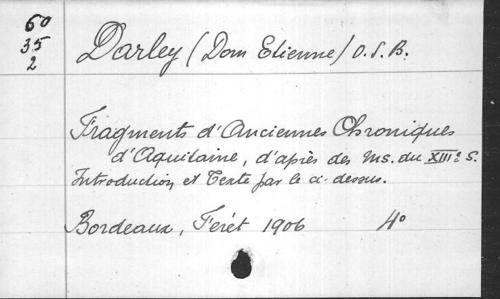 60
35
2
Darley (Dom Etienne) O.S.B.
Fragments d'Anciennes Chroniques
d'Aquitaine, d'après des ms. du XIIIe S.
Introduction et Texte par le ci-dessus.
Bordeaux, Feret 1906 4o